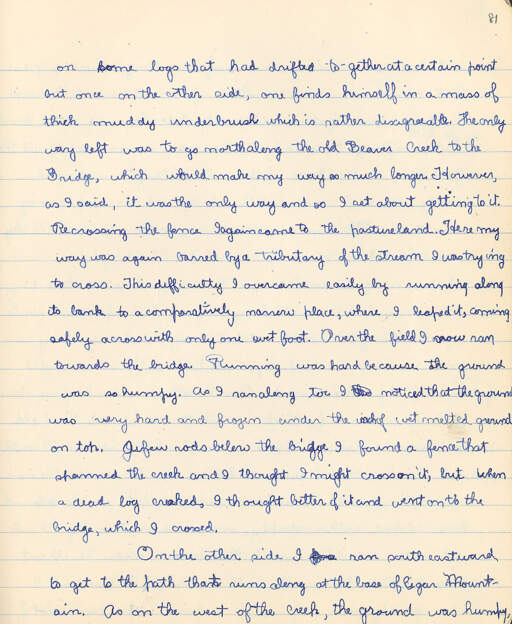 81
on some logs that had drifted to-gether at a certain point
but once on the other side, one finds himself in a mass of
thick muddy underbrush which is rather disagreeable. The only
way left was to go north along the old Beaver Creek to the
Bridge, which would make my way so much longer. However,
as I said, it was the only way and so I set about getting to it.
Recrossing the fence I again came to the pasture land. Here my
way was again barred by a tributary of the stream I was trying
to cross. This difficulty I overcame easily by running along
its bank to a comparatively narrow place, where I leaped it, coming
safely across with only one wet foot. Over the field I now ran
towards the bridge. Running was hard because the ground
was so humpy. As I ran along too I noticed that the ground
was very hard and frozen under the inch of wet melted ground
on top. A few rods below the bridge I found a fence that
spanned the creek and I thought I might cross on it, but when
a dead log creaked, I thought better of it and went on to the
bridge, which I crossed.
On the other side I ran south eastward
to get to the path that runs along at the base of Mount-
ain. As on the west of the creek, the ground was humpy,